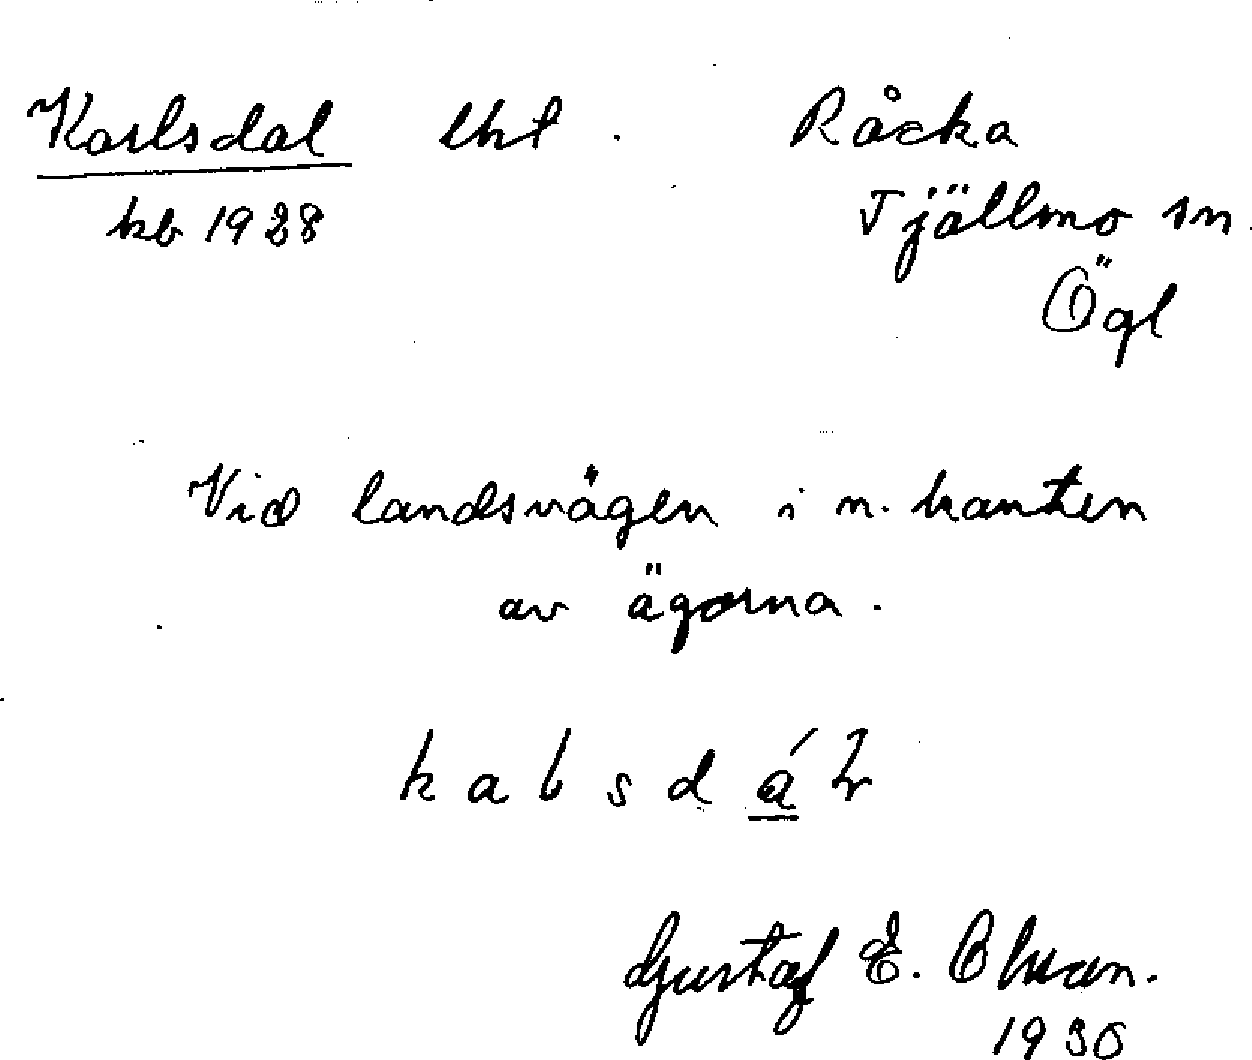 Karlsdal lht. Råcka
kb 1928 Tjällmo sn.
Ögl
Vid landsvägen i n. kanten
av ägorna.
k a l s d á l
Gustaf E. Olsson.
1930